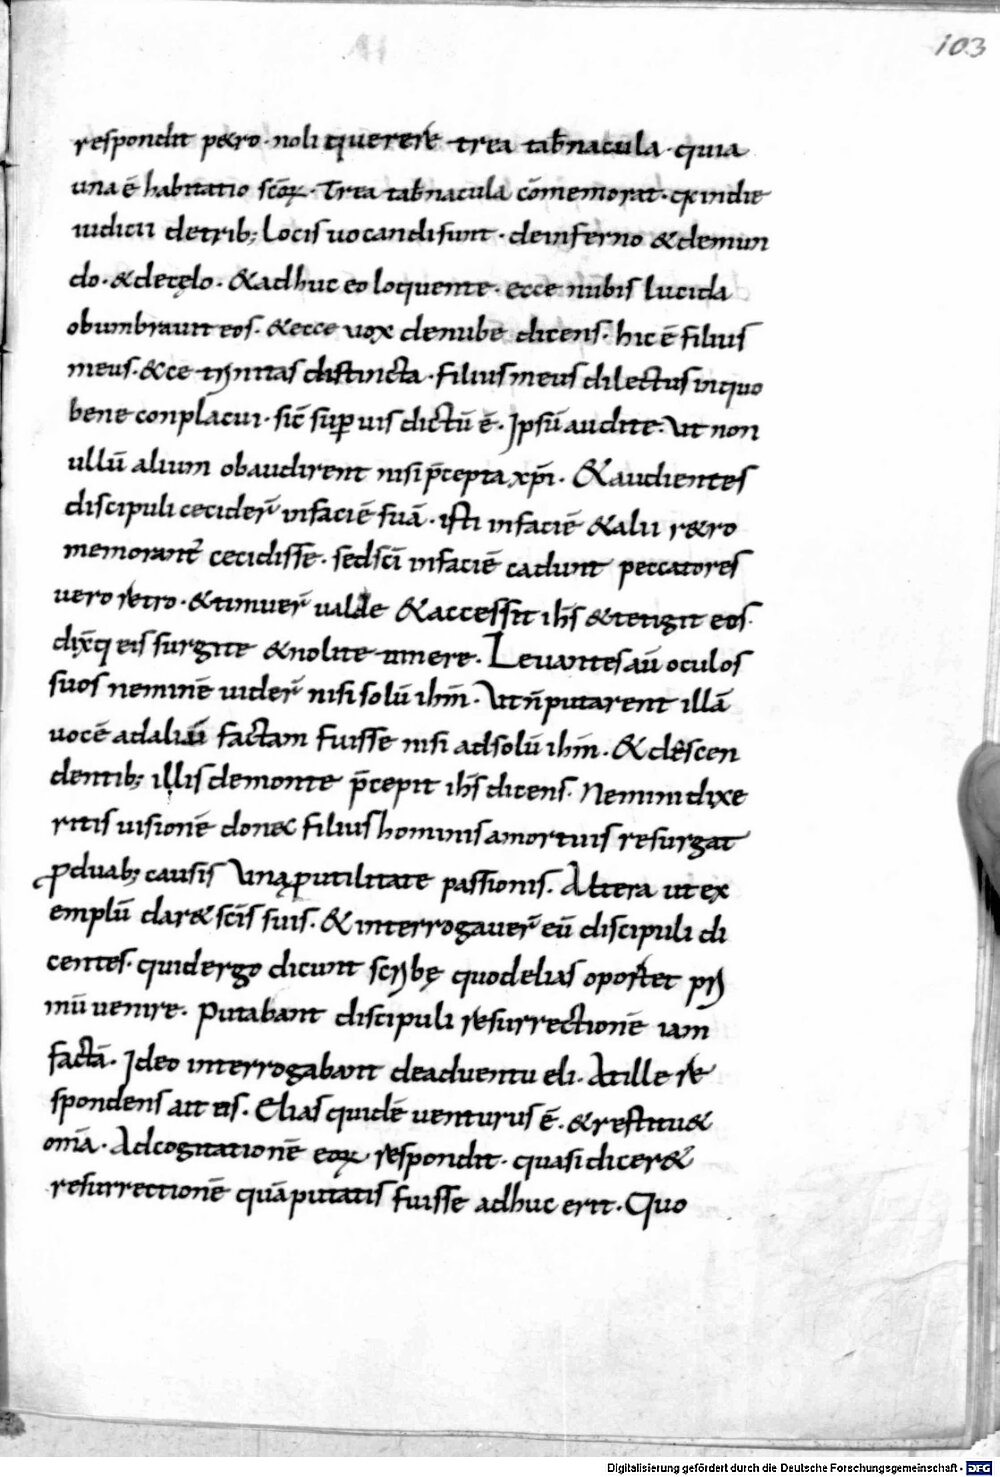 103
respondit p&ro · noli querere trea tab̄nacula · quia
una ē habitatio scōꝝ · Trea tab̄nacula cōmemorat · q̄ in die
iudicii de trib; locis uocandi sunt · de inferno & de mun
do · & de cęlo · & adhuc eo loquente · ecce nubis lucida
obumbrauit eos · & ecce uox de nube dicens · hic ē filius
meus · & ce trinitas distincta · filius meus dilectus in quo
bene conplacui · sic̄ suꝑuis dictū ē · Ipsū audite · Ut non
ullū alium obaudirent nisi p̄cepta xp̄i · & audientes
discipuli cecider̄ in faciē suā · isti in faciē & alii r&ro
memorant̄ cecidisse · sed sc̄i in faciē cadunt peccatores
uero retro · & timuer̄ ualde & accessit ih̄s & tetigit eos ·
dix̄q; eis surgite & nolite timere · Leuantes aū oculos
suos neminē uider̄ nisi solū ih̄m · Ut n̄ putarent illā
uocē ad aliū factam fuisse nisi ad solū ih̄m · & descen
dentib; illis de monte p̄cepit ih̄s dicens · Nemini dixe
ritis uisionē donec filius hominis a mortuis resurgat
ꝓ duab; causis Una ꝓ utilitate passionis · Altera ut ex
emplū dar& sc̄is suis · & interrogauer̄ eū discipuli di
centes · quid ergo dicunt scribę quod elias oportet pri
mū uenire · Putabant discipuli resurrectionē iam
factā · Ideo interrogabant de aduentu eli · At ille re
spondens ait eis · Elias quidē uenturus ē · & restitu&
om̄ia · Ad cogitationē eoꝝ respondit · quasi dicer&
resurrectionē quā putatis fuisse adhuc erit · Quo
Digitalisierung gefördert durch die Deutsche Forschungsgemeinschaft - DFG